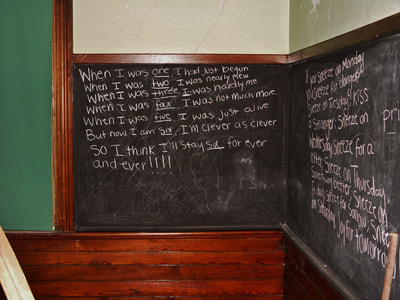 When I was one I had just begun.
When I was two I was nearly new
When I was three I was hardly me
When I was four I was not much more.
When I was five I was just alive
But now I am six, I'm clever as clever
So I think I'll stay six for ever
and ever!!!!
If you sneeze on Monday
you sneeze for danger.
Sneeze on Tuesday, kiss
a stranger. Sneeze on
Wednesday sneeze for a
letter. Sneeze on Thursday
something better. Sneeze on
Friday sneeze for sorrow. Sneeze
on Saturday joy for tomorrow